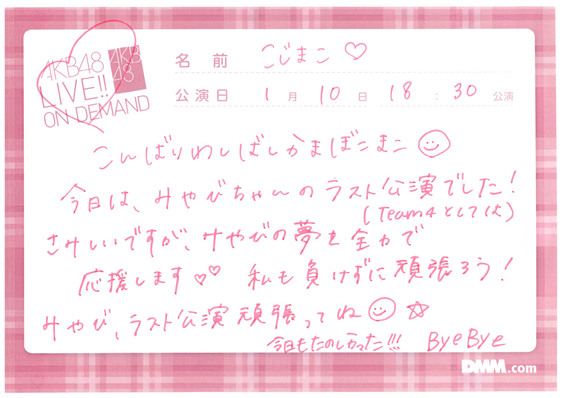 AKB48
LIVE!!
ON DEMAND
AKB
48
名前 こじまこ♡
公演日 1月10日 18:30公演
こんばりわしばしかまぼこまこ☺
今日は、みやびちゃんのラスト公演でした!
(Team4としては)
さみしいですが、みやびの夢を全力で
応援します♡♡ 私も負けずに頑張ろう!
みやび、ラスト公演頑張ってね☺☆
今日もたのしかった!!! ByeBye
DMM.com